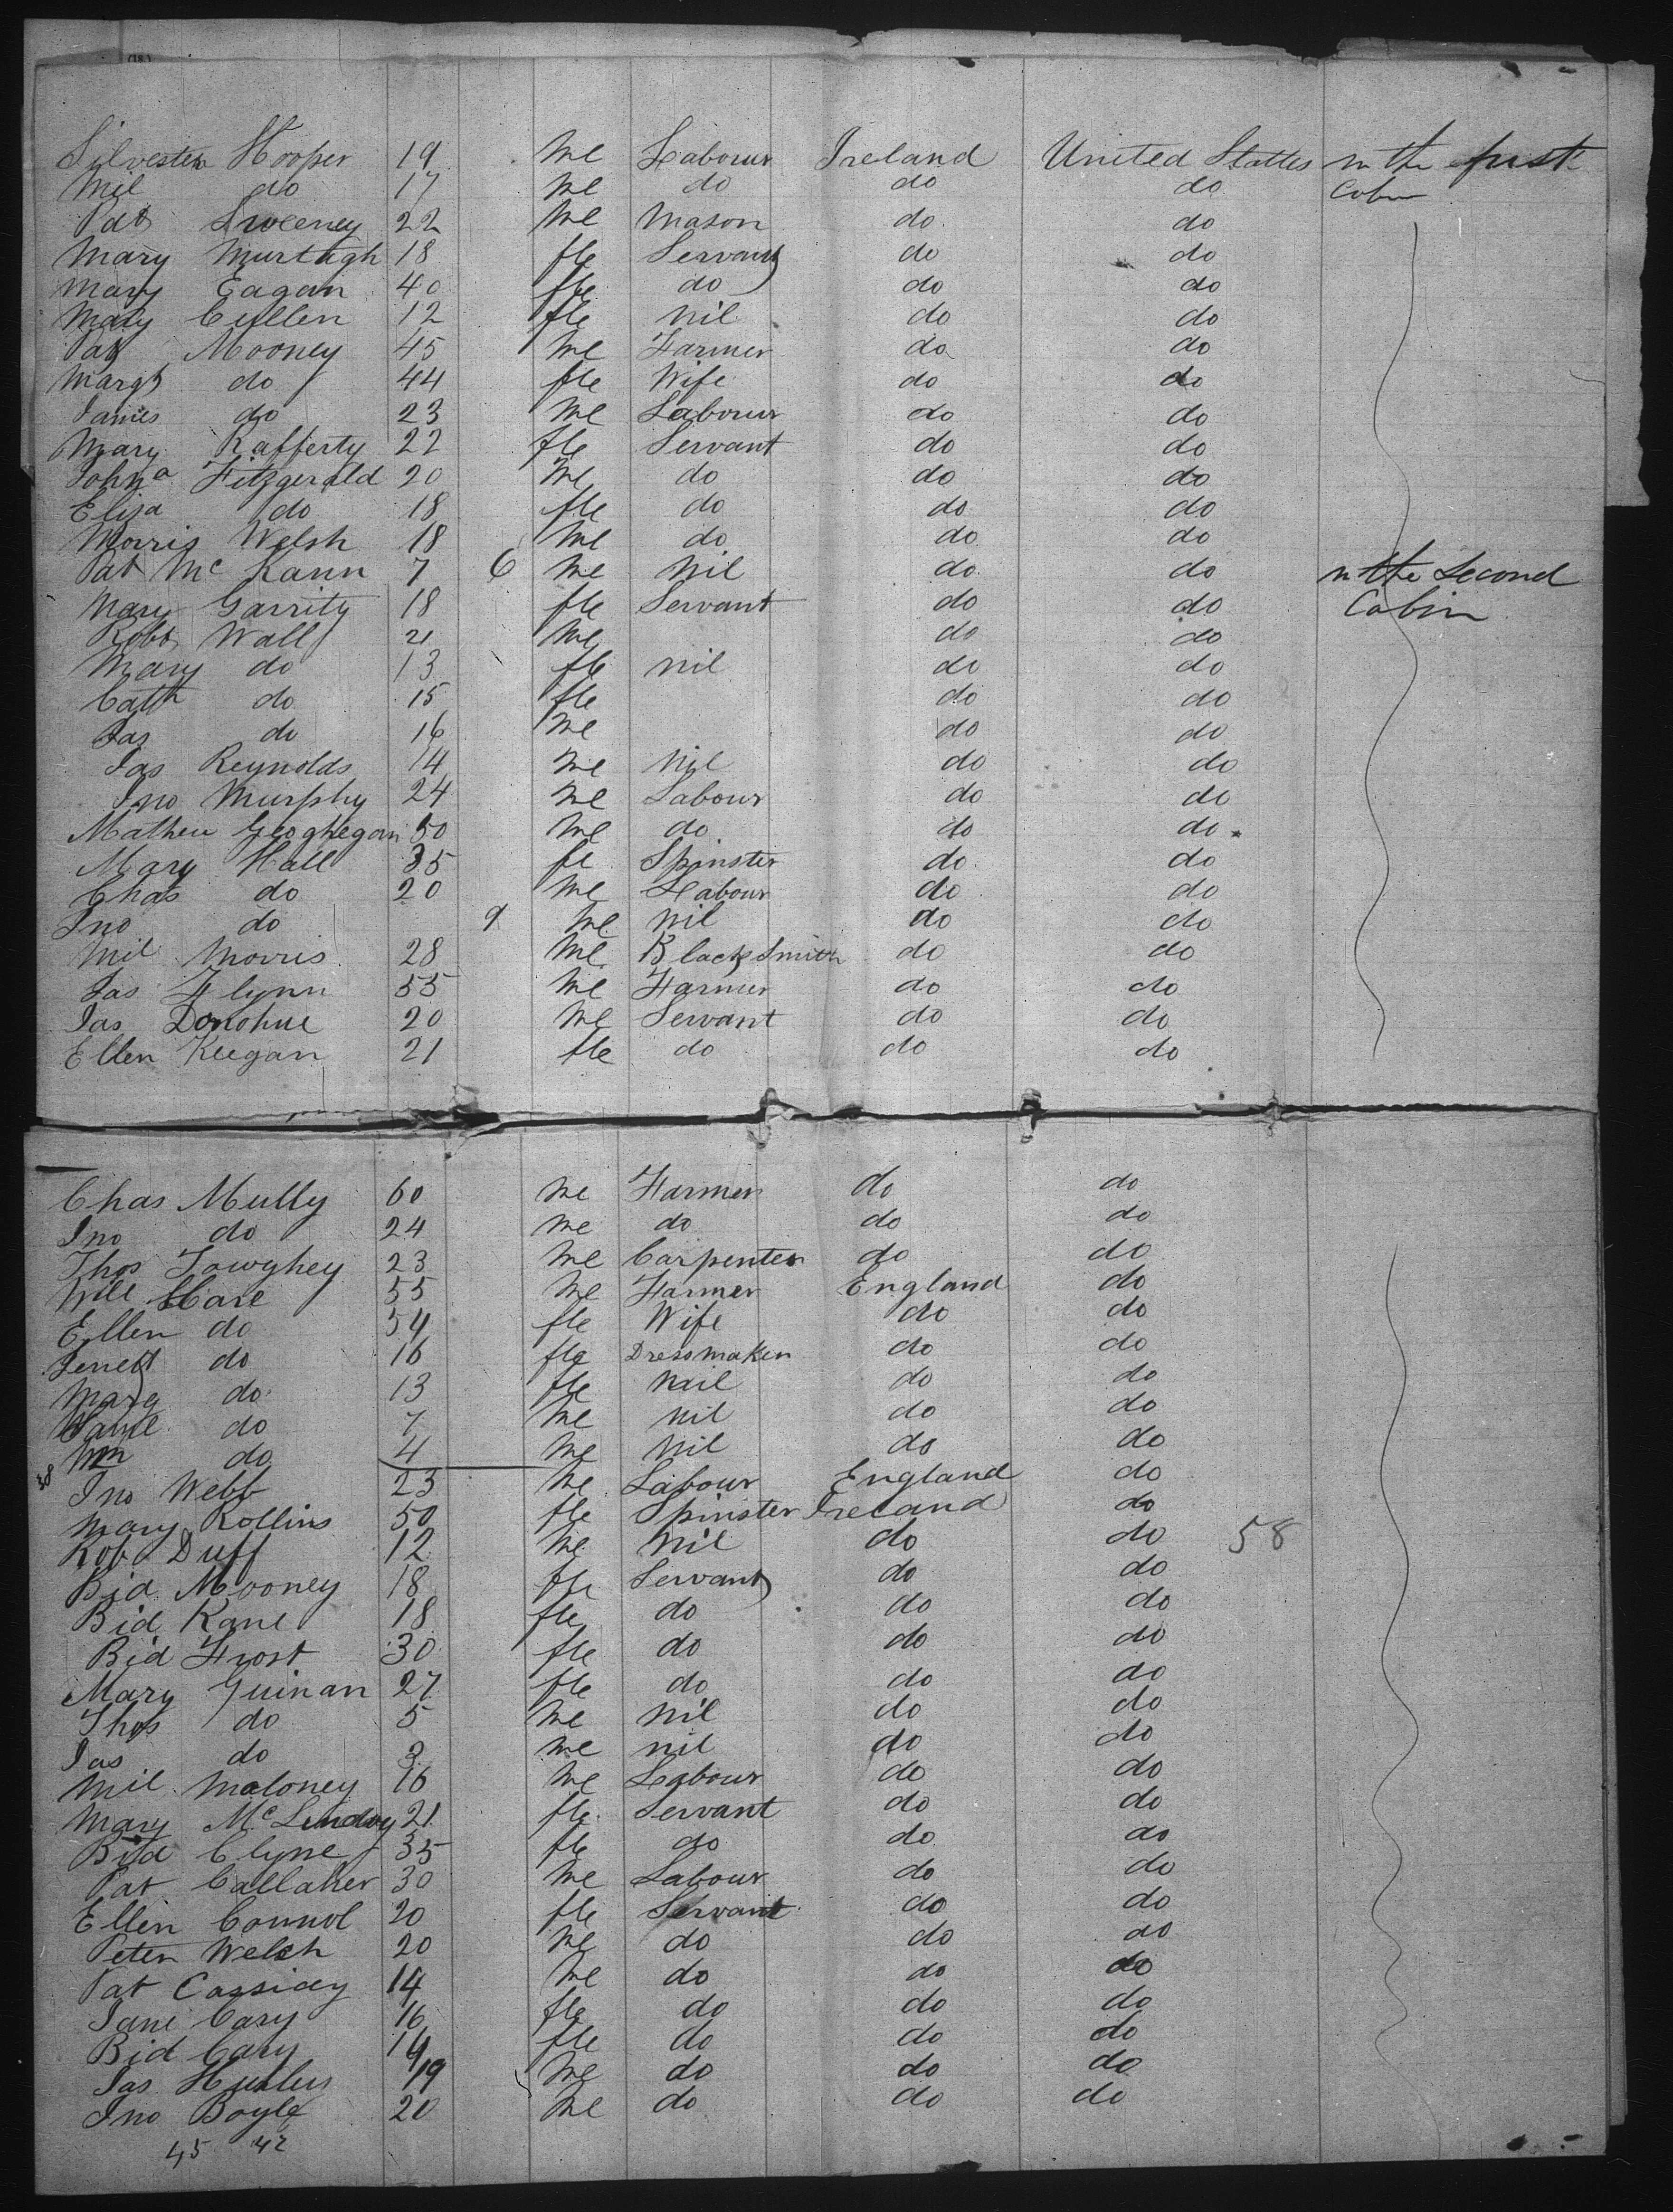 (18)
Silvester Hooper 19 Me Labour Ireland United Stattes in the first
Mil do 17 Me do do do Cabin
Pat Sweeney 22 Me Mason do do
Mary Murtagh 18 fle Servant do do
Mary Eagan 40 fle do do do
Mary Cullen 12 fle nil do do
Pat Mooney 45 Me Farmer do do
Margt do 44 fle Wife do do
James do 23 Me Labour do do
Mary Rafferty 22 fle Servant do do
John Fitzgerald 20 Me do do do
Eliza do 18 fle do do do
Morris Welsh 18 Me do do do
Pat Mc Kann 7 6 Me Nil do do in the Second
Mary Garrity 18 fle Servant do do Cabin
Robt Wall 21 Me do do
Mary do 13 fle nil do do
Cath do 15 fle do do
Jas do 16 Me do do
Jas Reynolds 14 Me Nil do do
Jno Murphy 24 Me Labour do do
Mathew Geoghegan 50 Me do do do
Mary Hall 35 fe Spinster do do
Chas do 20 Me Labour do do
Jno do 9 Me nil do do
Mil Morris 28 Me Black Smith do do
Jas Flynn 55 Me Farmer do do
Jas Donohue 20 Me Servant do do
Ellen Keegan 21 fle do do do
Chas Mully 60 Me Farmer do do
Jno do 24 Me do do do
Thos Towghey 23 Me Carpenter do do
Will Hare 55 Me Farmer England do
Ellen do 54 fle Wife do do
Jenett do 16 fle Dressmaker do do
Marg do 13 fle nail do do
Saml do 7 Me nil do do
Wm do 4 Me Nil do do
Jno Webb 23 Me Labour England do
Mary Rollins 50 fle Spinster Ireland do
Rob Duff 12 Me Nil do do 58
Bid Mooney 18 fle Servant do do
Bid Kane 18 fle do do do
Bid Frost 30 fle do do do
Mary Guinan 27 fle do do do
Thos do 5 Me Nil do do
Jas do 3 Me nil do do
Mil Maloney 16 Me Labour do do
Mary Mc 21 fle Servant do do
Bid Clyne 35 fle do do do
Pat Callaher 30 Me Labour do do
Ellen Connol 20 fle Servant do do
Peter Welsh 20 Me do do do
Pat Cassidy 14 Me do do do
Jane Cary 16 fle do do do
Bid Cary 14 fle do do do
Jas 19 Me do do do
Jno Boyle 20 Me do do do
45 42